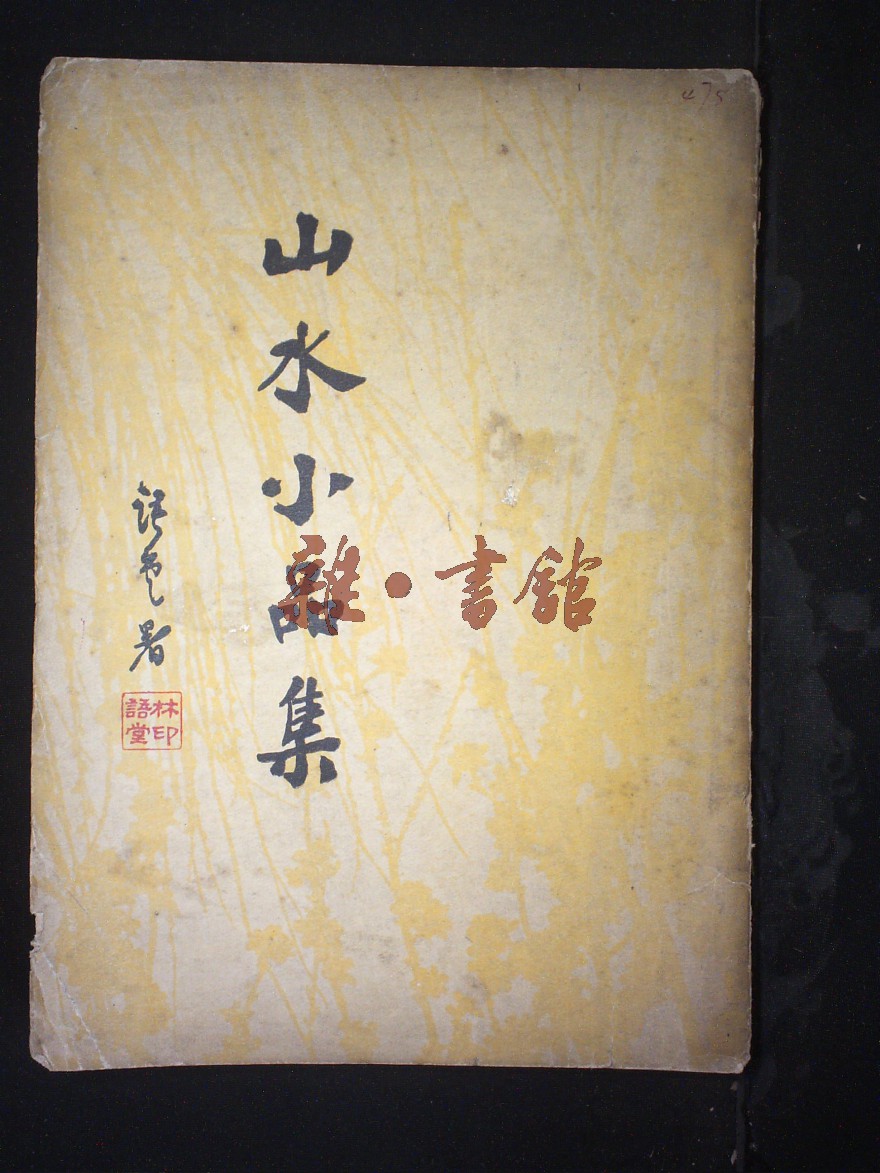 478
山水小品集
語堂署
林印
語堂
雜·書館